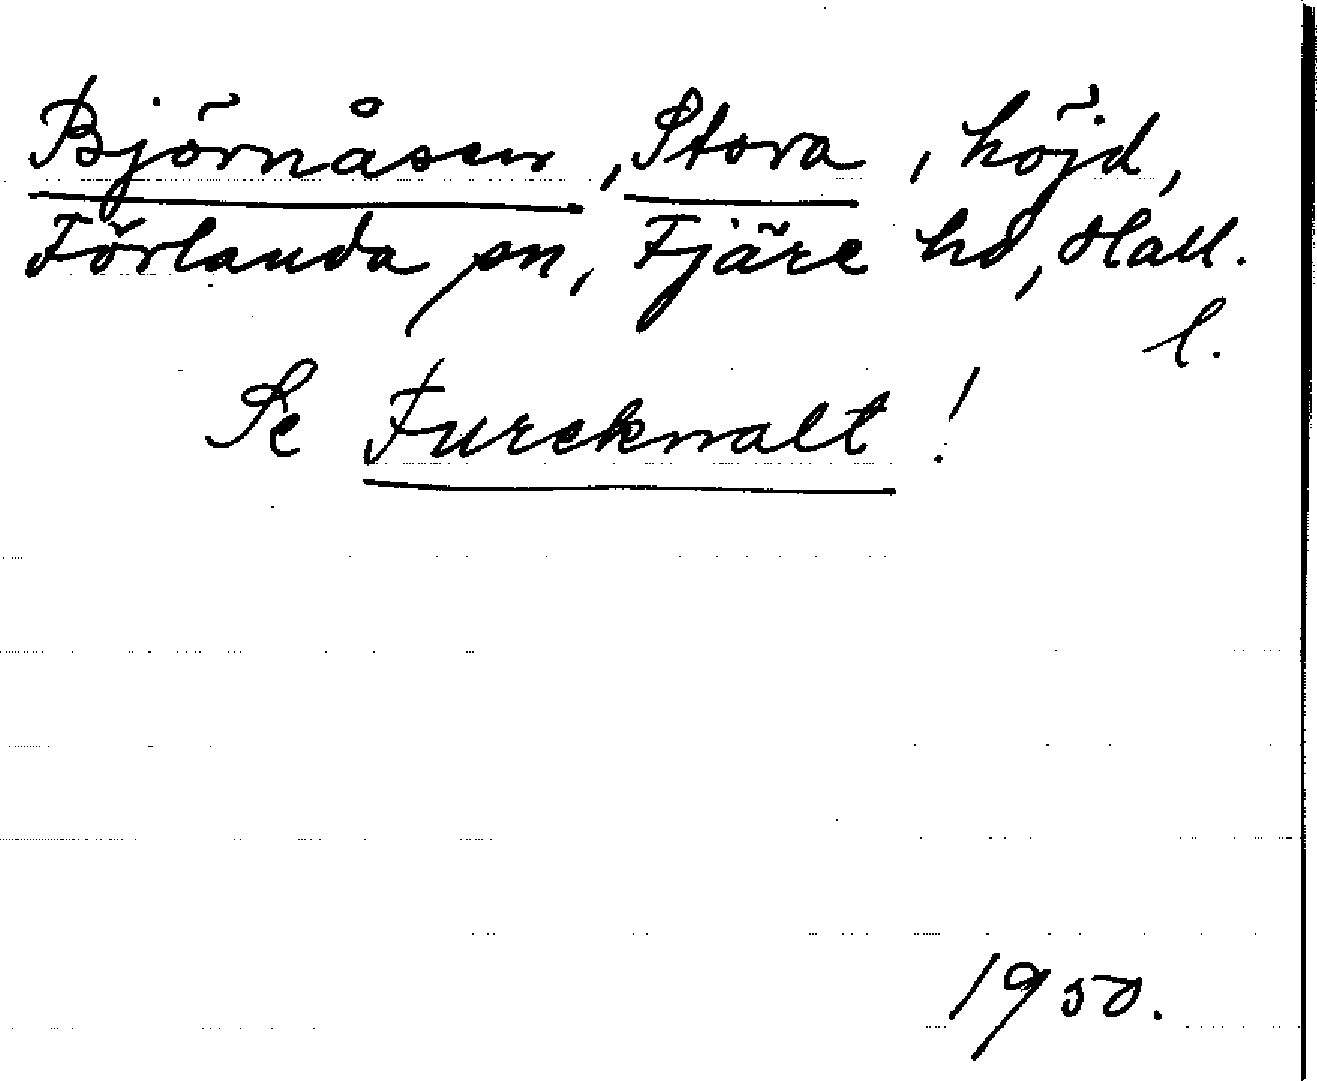 Björnåsen, Stora, höjd,
Förlanda sn, Fjäre hd, Hall.
l.
Se Fureknalt!
1950.